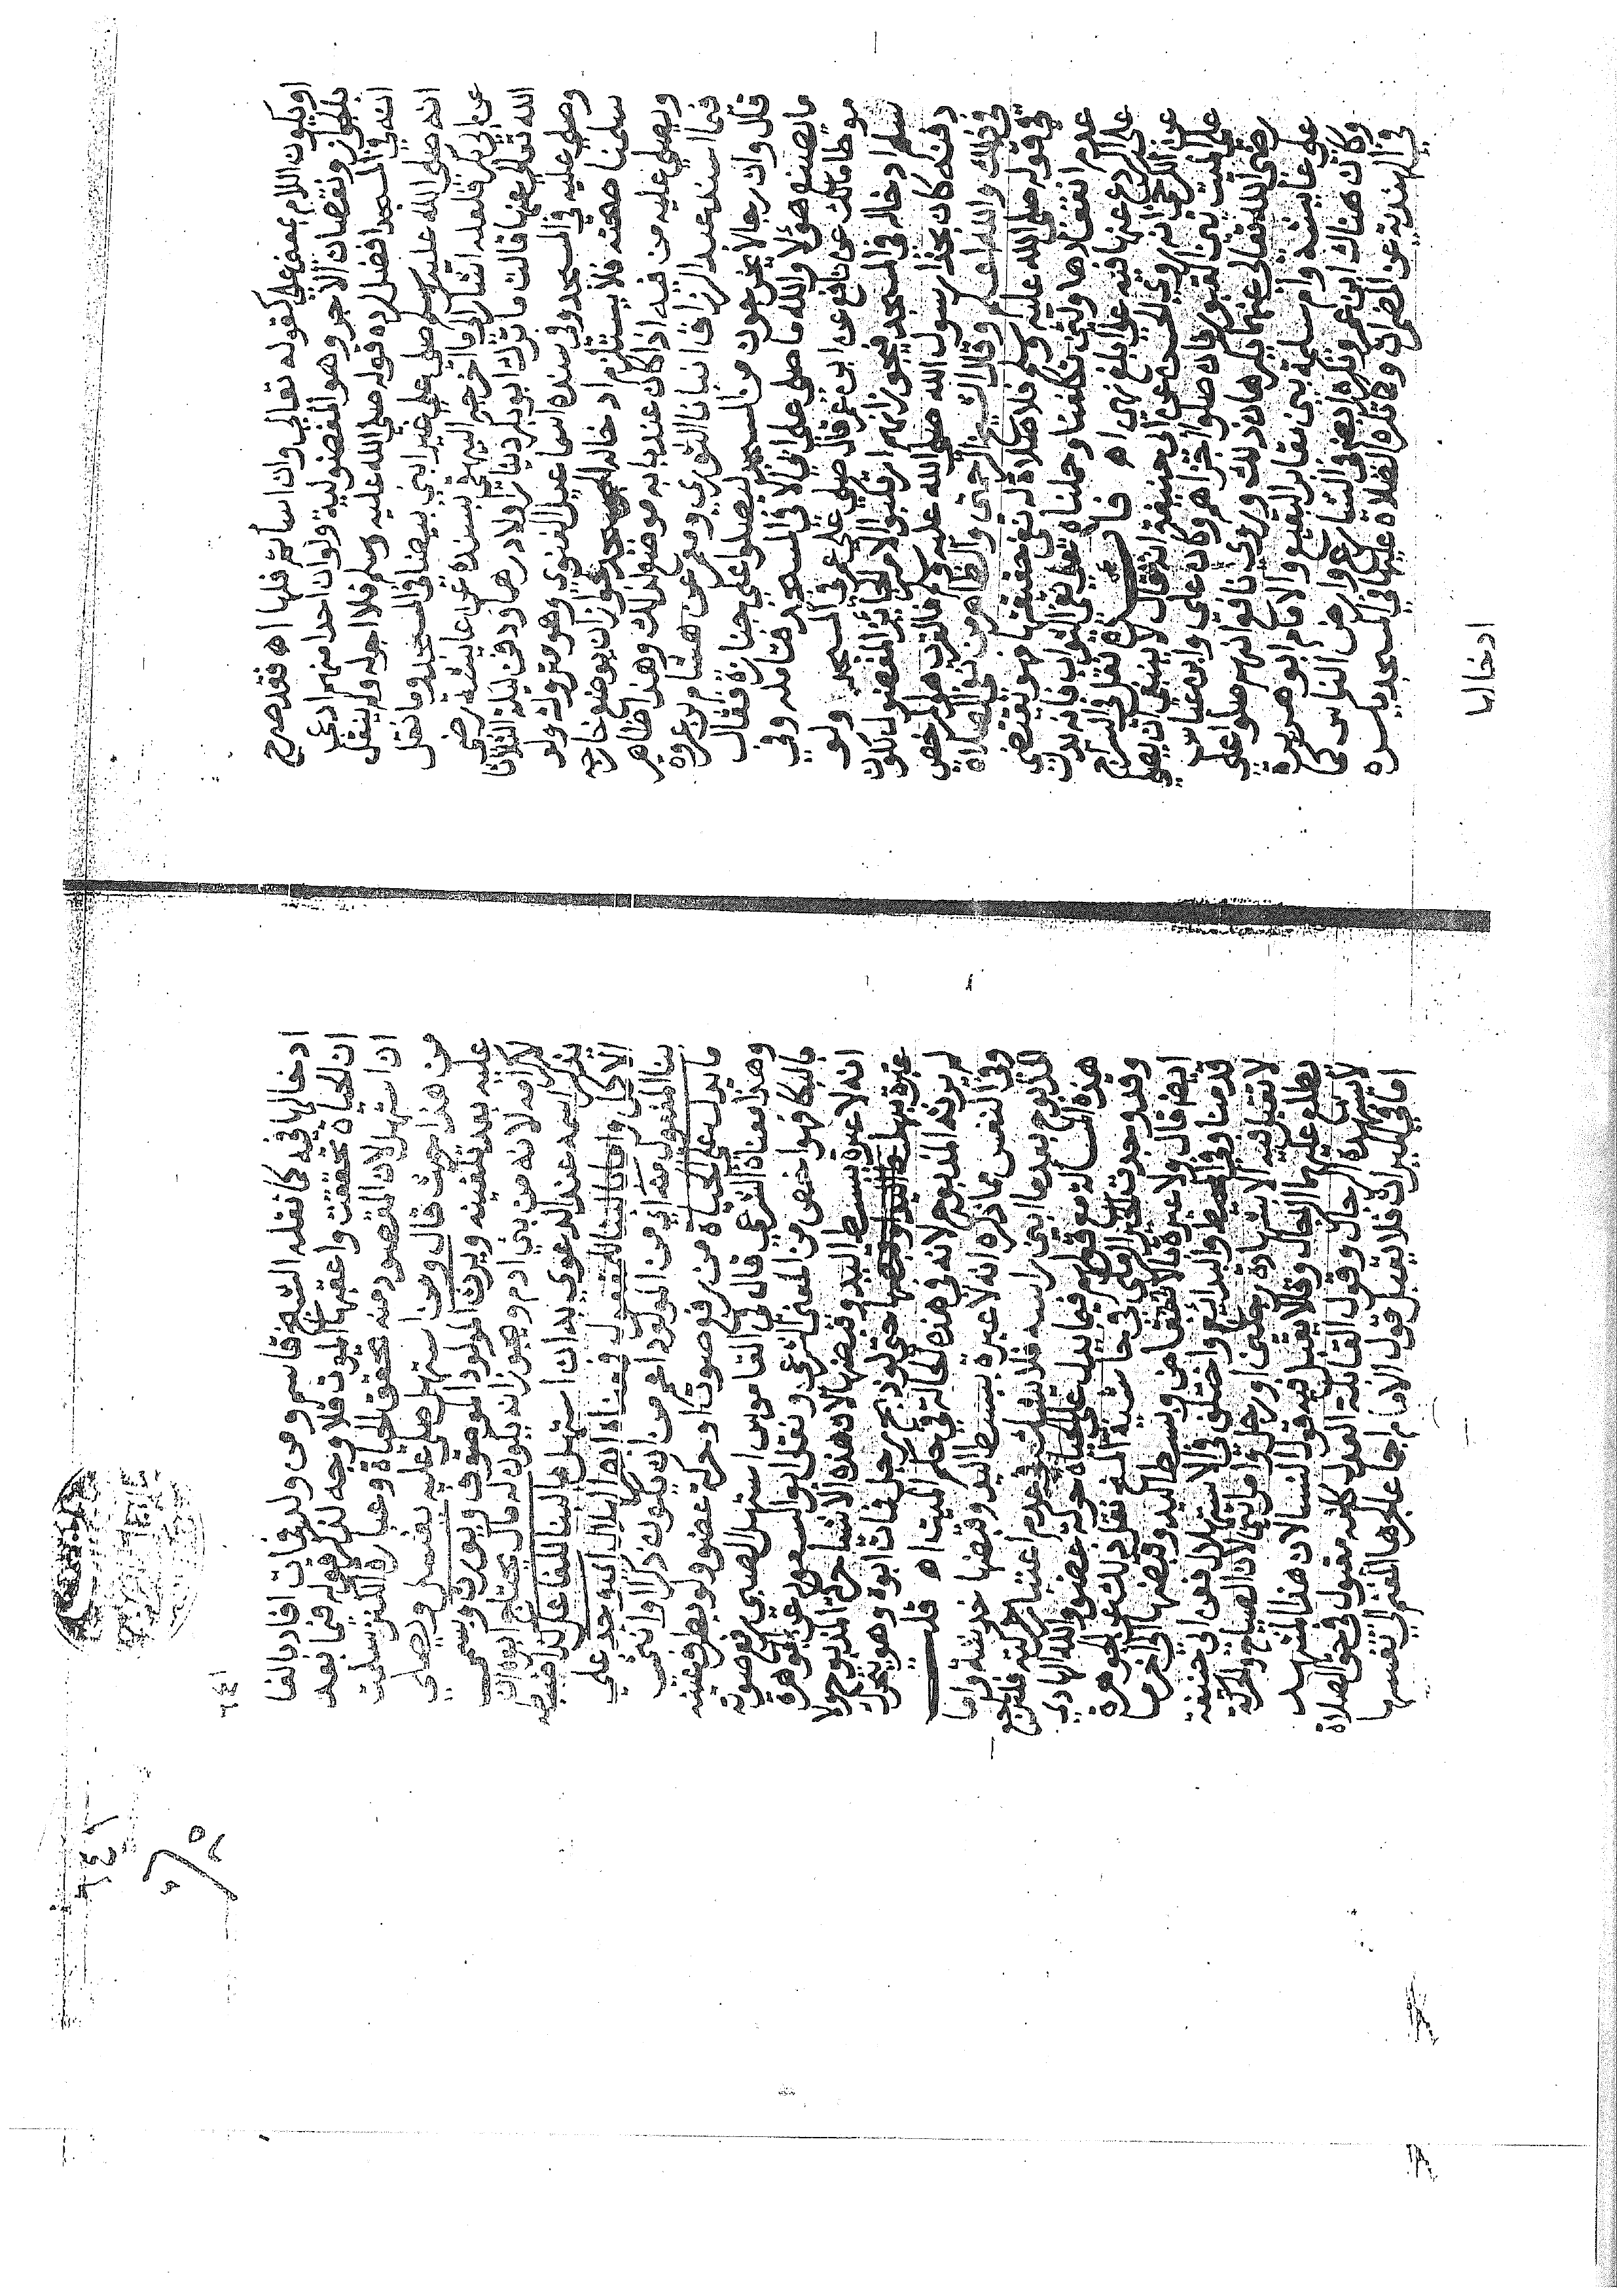 او يكون اللام بمعنى على كقوله تعالى وان اسأتم فلها اه فقد صرح
بالجواز ونقصان الاجر وهو المفضولية ولو ان احدا منهم ادعى
انه في المسجد افضل رده قوله صلى الله عليه وسلم فلا اجر له ولم ينقل
انه صلى الله عليه وسلم صلى على غير ابني بيضا في المسجد وما نقل
عن ابي بكر فلعله اشار الى ما اخرجه البيهقي بسنده عن عايشة رضي
الله تعالى عنها قالت ما ترك ابو بكر دينارا ولا درهما ودفن ليلة الثلاثا
وصلي عليه في المسجد وفي سنده اسماعيل الغنوي وهو متروك ولو
سلمنا صحته فلا يستلزم ادخاله المسجد لجواز ان يوضع خارجه
ويصلي عليه من فيه اذا كان عند بابه موضع لذلك وهذا ظاهر
فيما اسند عبد الرزاق انبانا الثوري ومعمر عن هشام بن عروة
قال راى رجالا يخرجون من المسجد ليصلوا على جنازة فقال
ما يصنع هؤلا والله ما صلي على ابي الا في المسجد فتامله وفي
موطا مالك عن نافع عن ابن عمر قال صلي على عمر في المسجد ولو
سلم ادخاله في المسجد فيجوز انهم ارتكبوا الامر الجايز المفضول لكون
دفنه كان بحذا رسول الله صلى الله عليه وسلم
في ذلك والله اعلم وقال
في قوله صلى الله عليه وسلم فلا صلاة له نفي حقيقتها فهو يقتضي
عدم انعقادها
على الردع عنها فيه على ابلغ نهي اه
عن الكرخي انه روي الحسن عن ابي حنيفة انه قال لا ينبغي ان يصلى
على الميت بين القبور فان صلوا اجزاهم وكان علي وابن عباس
رضي الله تعالى عنهما يكرهان ذلك وروي نافع انهم صلوا على
على عايشة وام سلمة بين مقابر البقيع والامام ابو هريرة
وكان هناك ابن عمر وتكره ايضا في الشارع وارض الناس كما
في الهندية عن المضمرات وكما تكره الصلاة عليها في المسجد يكره
ادخالها
٢٤١
ادخالها فيه كما نقله الشيخ قاسم ومن ولد فمات افاد بالفا
ان الحياة تحققت واعقبها الموت فلا وجه لذكر قوله فيما بعد
ان استهل لان المقصود منه تحقق الحياة وعبارة الكنز سلمت
من هذا حيث قال ومن استهل صلي عليه يغسل ويصلى
عليه بعد تكفينه ويرث المولود الموصوف ويورث ويسمى
اكراما له لانه من بني ادم ويجوز انه يكون له مال يحتاج ابوه ان
يذكر اسمه عند الدعوى به ان استهل بالبنا للفاعل
الاهلال
بنا المفعول منه اي من المولود اعم من ان يكون ذكرا او انثى
ما يدل على الحياة من رفع صوت او حركة عضو ولو بطرف عينه
وهذا معناه الشرعي قال في القاموس استهل الصبي رفع صوته
بالبكا فهو اخص من المعنى الشرعي ونقل ابو السعود عن الجوهرة
انه لا عبرة ببسط اليد وقبضها لان هذه الاشيا حركة المذبوح ولا
عبرة بها حتى لو ذبح رجل فمات ابوه وهو يتحرك
لم يرثه المذبوح لانه في هذه الحالة في حكم الميت اه قلت
وفي النفس مما ذكره انه لا عبرة ببسط اليد وقبضها خدشة واما
المذبوح بعد ما ابين راسه فلا شك في عدم اعتبار حركته فليراجع
هذه المسالة مع قولهم فيما يدل على الحياة حركة عضو والله الهادي
وقد وجدت
ايضا قال ولا عبرة بالانقباض وبسط اليد وقبضها الى اخر ما
قدمنا وفي المحيط والبدائع واختلف في الاستهلال فعن ابي حنيفة
لا تقبل فيه الا شهادة رجلين او رجل وامراتين لان الصياح والحركة
تطلع عليها الرجال وقالا يقبل فيه قول النسا لان هذا المشهد
لا يشهده الرجال وقول القابلة العدل كلمة مقبول في حق الصلاة
اما في الميراث فلا يقبل قول الام اجماعا لجرها المغنم الى نفسها